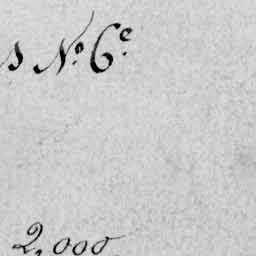 s N.º 6.e
2,000